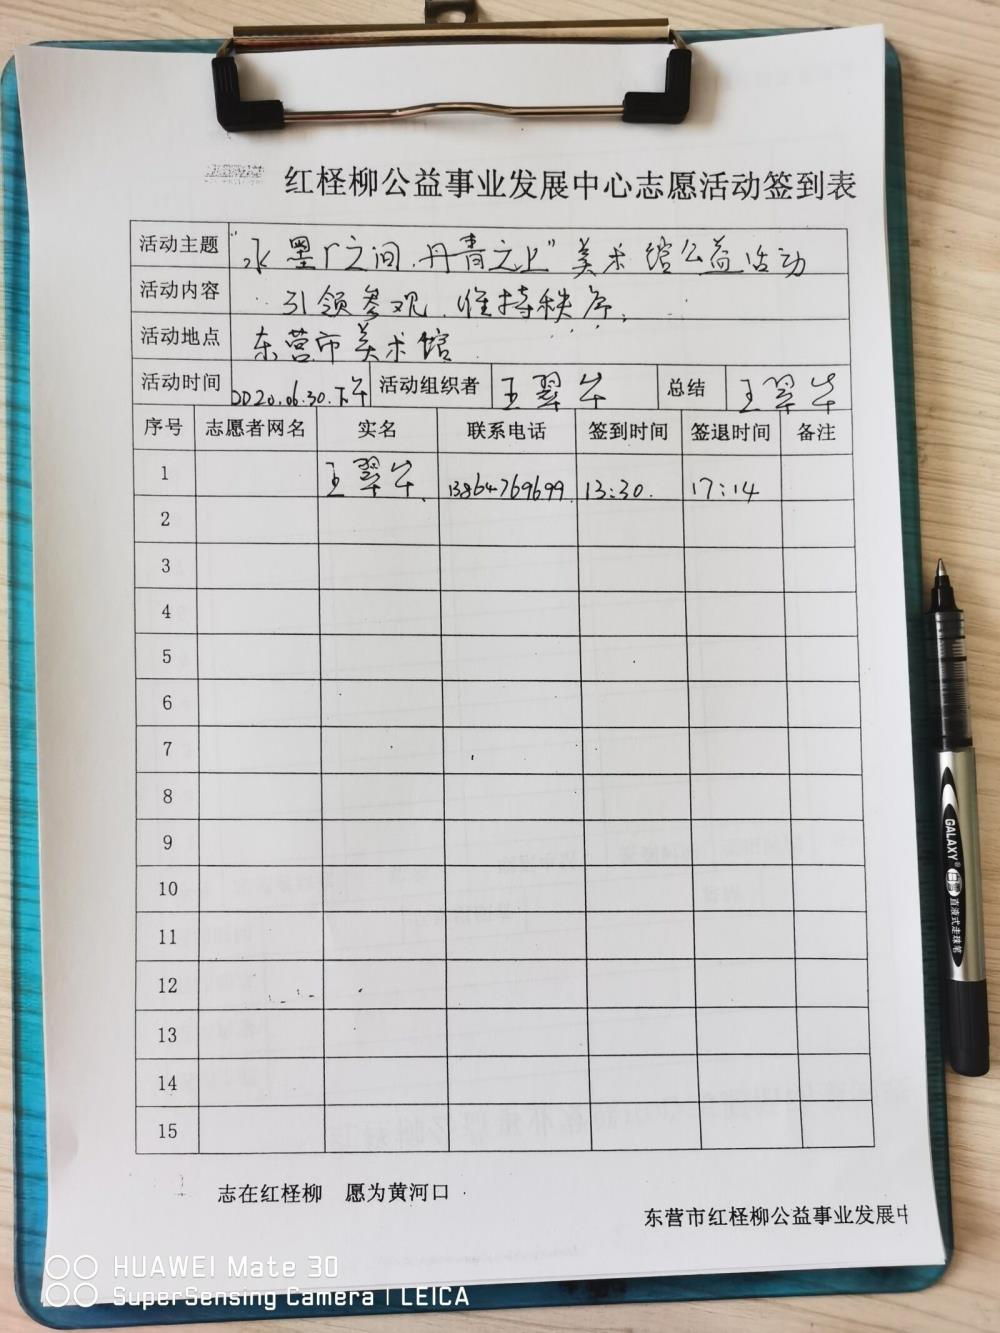 红柽柳公益事业发展中心志愿活动签到表
活动主题 "水墨之间.丹青之上"美术馆公益活动
活动内容 引领参观.维持秩序.
活动地点 东营市美术馆
活动时间 2020.06.30.下午 活动组织者 王翠华 总结 王翠华
序号 志愿者网名 实名 联系电话 签到时间 签退时间 备注
1 王翠华. 13864769699 13:30. 17:14
2
3
4
5
6
7
8
9
10
11
12
13
14
15
志在红柽柳 愿为黄河口
东营市红柽柳公益事业发展中
GALAXY® 白雪 直液式走珠笔
HUAWEI Mate 30
SuperSensing Camera | LEICA